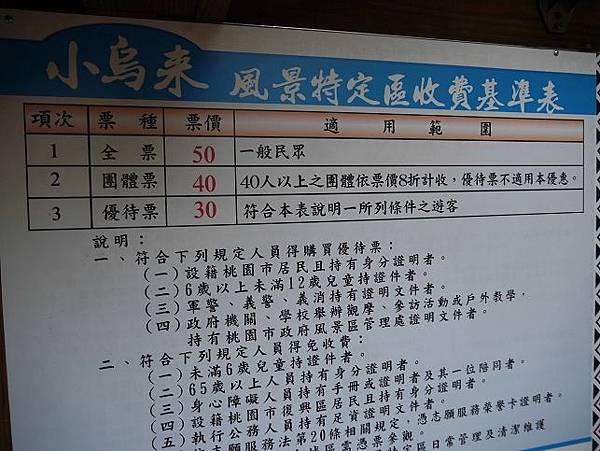 小烏来 風景特定區收費基準表
項次 票種 票價 適用範圍
1 全票 50 一般民眾
2 團體票 40 40人以上之團體依票價8折計收，優待票不適用本優惠。
3 優待票 30 符合本表說明一所列條件之遊客
說明：
一、符合下列規定人員得購買優待票：
(一)設籍桃園市居民且持有身分證明者。
(二)6歲以上未滿12歲兒童持證件者。
(三)軍警、義警、義消持有證明文件者。
(四)政府機關、學校舉辦觀摩、參訪活動或戶外教學，
持有桃園市政府風景區管理處證明文件者。
二、符合下列規定人員得免收費：
(一)未滿6歲兒童持證件者。
(二)65歲以上人員持有身分證明者。
(三)身心障礙人員持有手冊或證明者及其一位陪同者。
(四)設籍桃園市復興區居民且持有身分證明者。
(五)執行公務人員持有足資證明文件者。
志願服務法第20條相關規定，憑志願服務榮譽卡證明者。
區需憑票參觀。
特定區日常管理及清潔維護